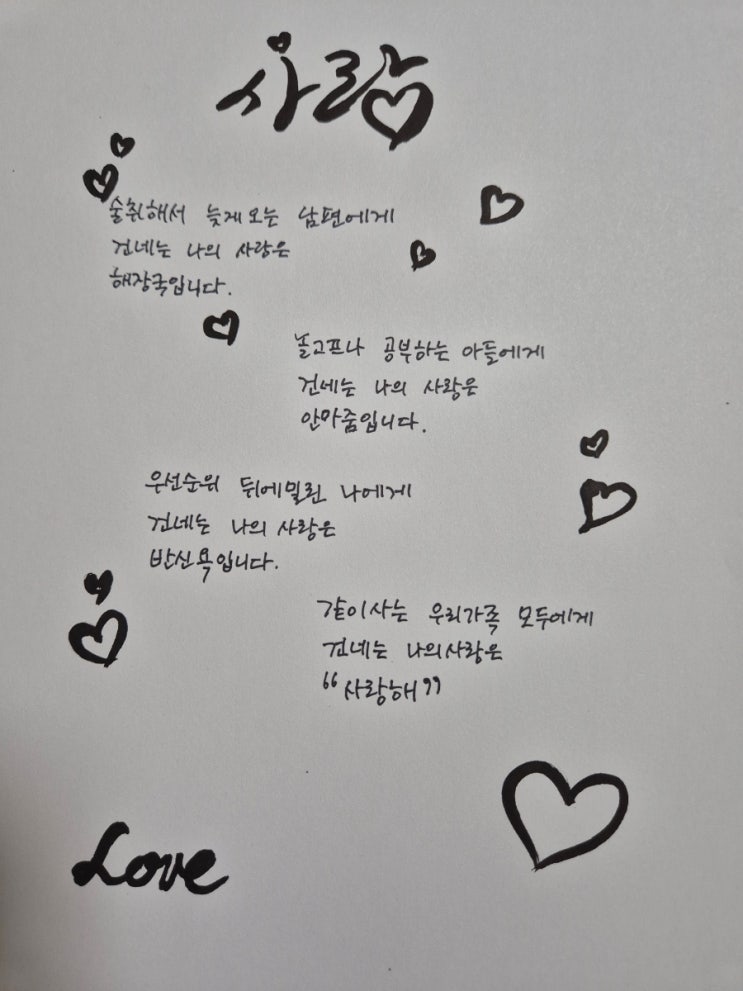 사랑
술취해서 늦게오는 남편에게
건네는 나의 사랑은
해장국입니다.
졸고프나 공부하는 아들에게
건네는 나의 사랑은
안마줌입니다.
우선순위 뒤에밀린 나에게
건네는 나의 사랑은
반신욕입니다.
같이사는 우리가족 모두에게
건네는 나의사랑은
“사랑해”
Love